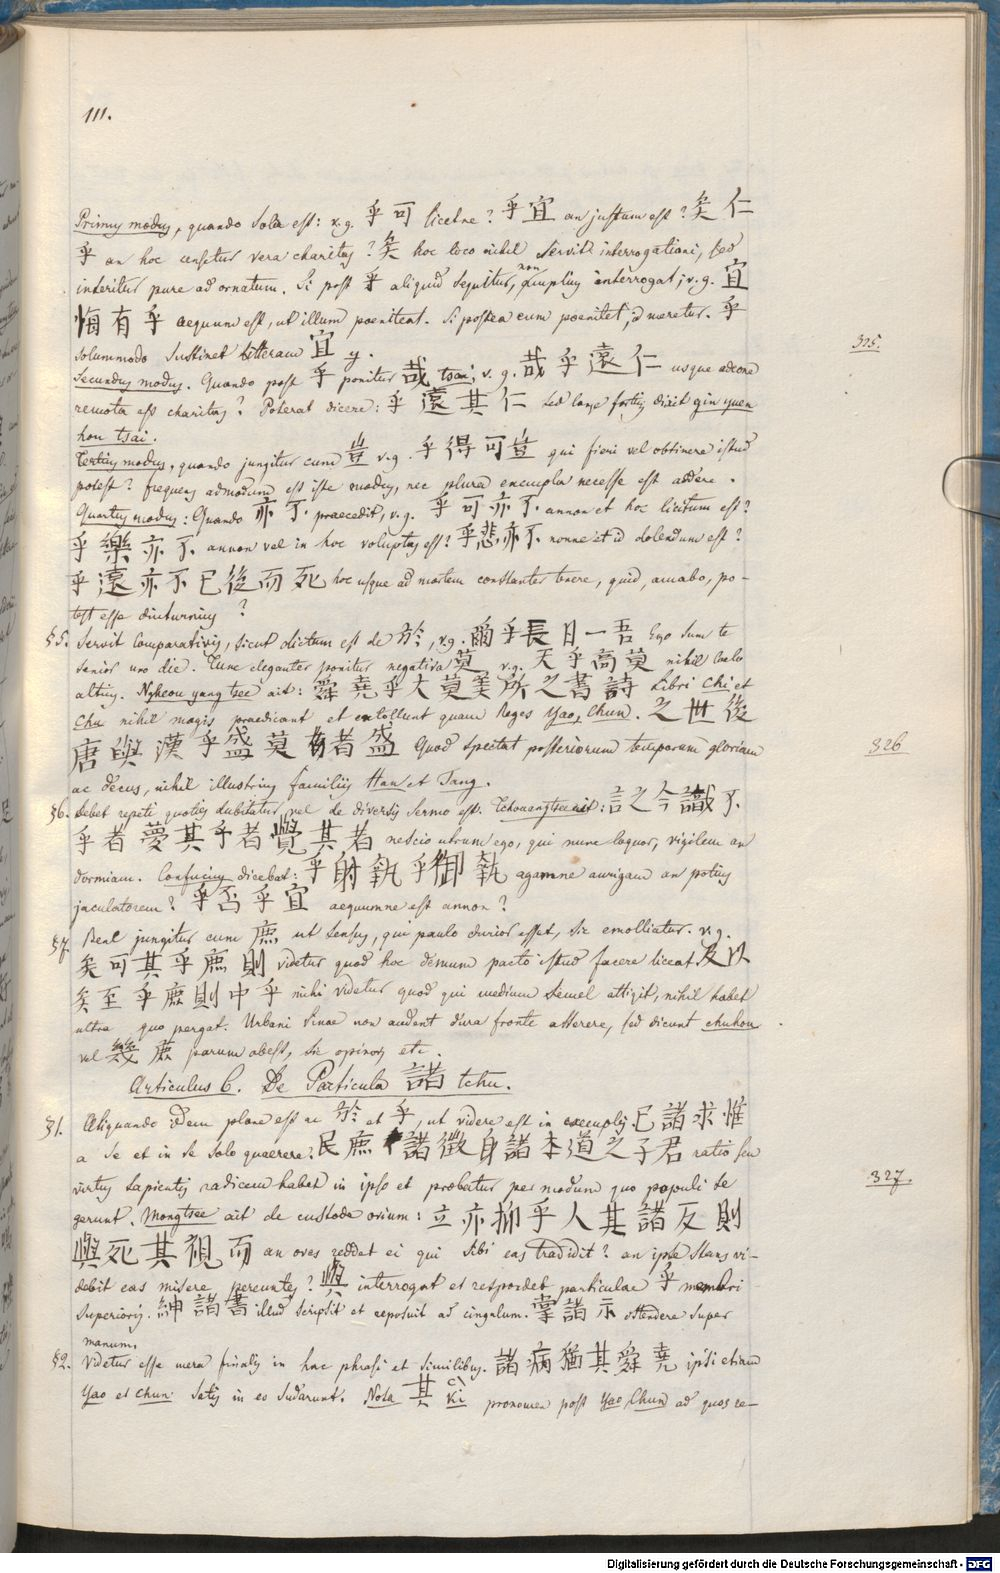 111.
Primus modus, quando sola est: v.g. 乎可 licetne? 乎宜 an justum est? 矣仁
乎 an hoc censetur vera charitas? 矣 hoc loco nihil servit interrogationi, sed
inseritur pure ad ornatum. Si post 乎 aliquid sequitur, non amplius interrogat; v.g. 宜
悔有乎 aequum est, ut illum poeniteat. Si postea eum poenitet, id meretur. 乎
solummodo sustinet litteram 宜 y.
325.
Secundus modus. Quando post 乎 ponitur 哉 tsai; v.g. 哉乎遠仁 usque adeone
remota est charitas? Poterat dicere: 乎遠其仁 sed longe fortius dixit gin yuen
hou tsai.
Tertius modus, quando jungitur cum 豈 v.g. 乎得可豈 qui fieri vel obtinere istud
potest? frequens admodum est iste modus, nec plura exempla necesse est addere.
Quartus modus: Quando 亦不 praecedit, v.g. 乎可亦不 annon et hoc licitum est?
乎樂亦不 annon vel in hoc voluptas est? 乎悲亦不 nonne et id dolendum est?
乎遠亦不已後而死 hoc usque ad mortem constanter tenere, quid, amabo, po-
test esse diuturnius?
§5. Servit comparativis, sicut dictum est de 於, v.g. 爾乎長日一吾 Ego sum te
senior uno die. Tunc eleganter ponitur negativa 莫 v.g. 天乎高莫 nihil coelo
altius. Ngheou yang tsee ait: 舜堯乎大莫美所之書詩 Libri Chi et
Chu nihil magis praedicant et extollunt quam Reges Yao, Chun. 之世後
326
唐與漢乎盛莫者盛 Quod spectat posteriorum temporum gloriam
ac decus, nihil illustrius familiis Han et Tang.
§6. Debet repeti quoties dubitatur vel de diversis sermo est. Tchouangtsee ait: 言之今識不
乎者夢其乎者覺其者 nescio utrum ego, qui nunc loquor, vigilem an
dormiam. Confucius dicebat: 乎射執乎御執 agamne aurigam an potius
jaculatorem? 乎否乎宜 aequumne est annon?
§7. Bene jungitur cum 庶 ut sensus, qui paulo durior esset, sic emolliatur. v.g.
矣可其乎庶則 videtur quod hoc demum pacto istud facere liceat 及以
矣至乎庶則中乎 mihi videtur quod qui medium semel attigit, nihil habet
ultra quo pergat. Urbani Sinae non audent dura fronte asserere, sed dicunt chuhou
vel 幾庶 parum abest, sic opinor etc.
Articulus 6. De Particula 諸 tchu.
§1. Aliquando idem plane est ac 於 et 乎, ut videre est in exemplis. 已諸求惟
a se et in se solo quaerere. 民庶諸徵身諸本道之子君 ratio seu
327.
virtus sapientis radicem habet in ipso et probatur per modum quo populi se
gerunt. Mongtsee ait de custode ovium: 立亦抑乎人其諸反則
與死其視而 an oves reddet ei qui sibi eas tradidit? an ipse stans vi-
debit eas misere pereuntes? 與 interrogat et respondet particulae 乎 membri
superioris. 紳諸書 illud scripsit et reposuit ad cingulum. 掌諸示 ostendere super
manum.
§2. Videtur esse mera finalis in hac phrasi et similibus. 諸病猶其舜堯 ipsi etiam
Yao et Chun satis in eo sudarunt. Nota 其 ki pronomen post Yao Chun ad quos re-
Digitalisierung gefördert durch die Deutsche Forschungsgemeinschaft - DFG